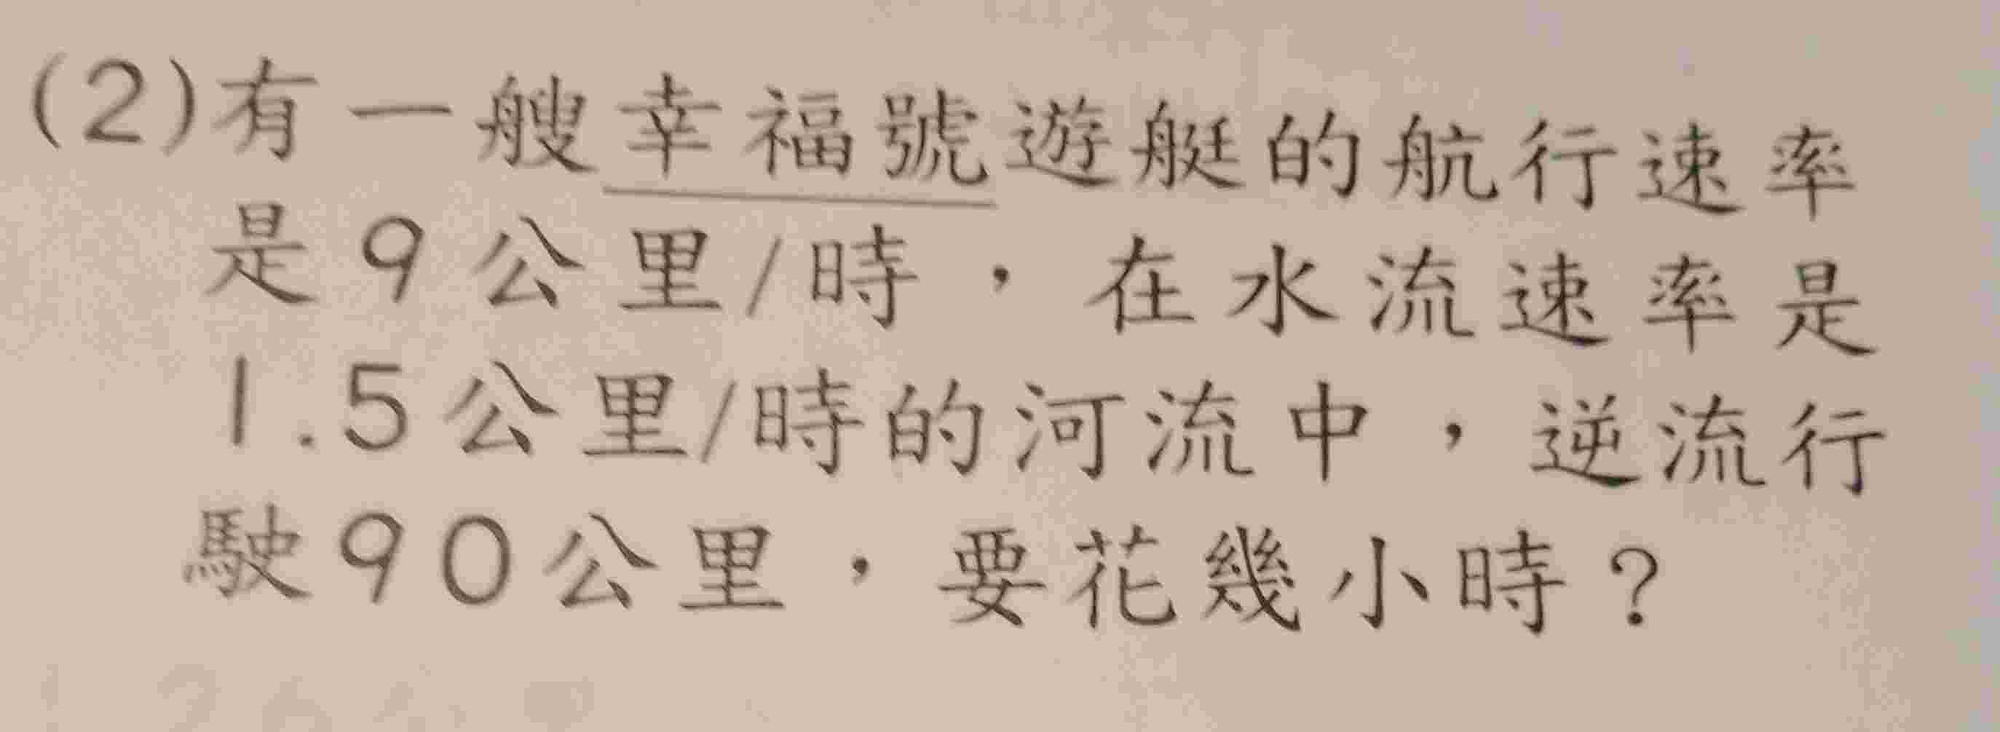 (2)有一艘幸福號遊艇的航行速率
是9公里/時，在水流速率是
1.5公里/時的河流中，逆流行
駛90公里，要花幾小時？